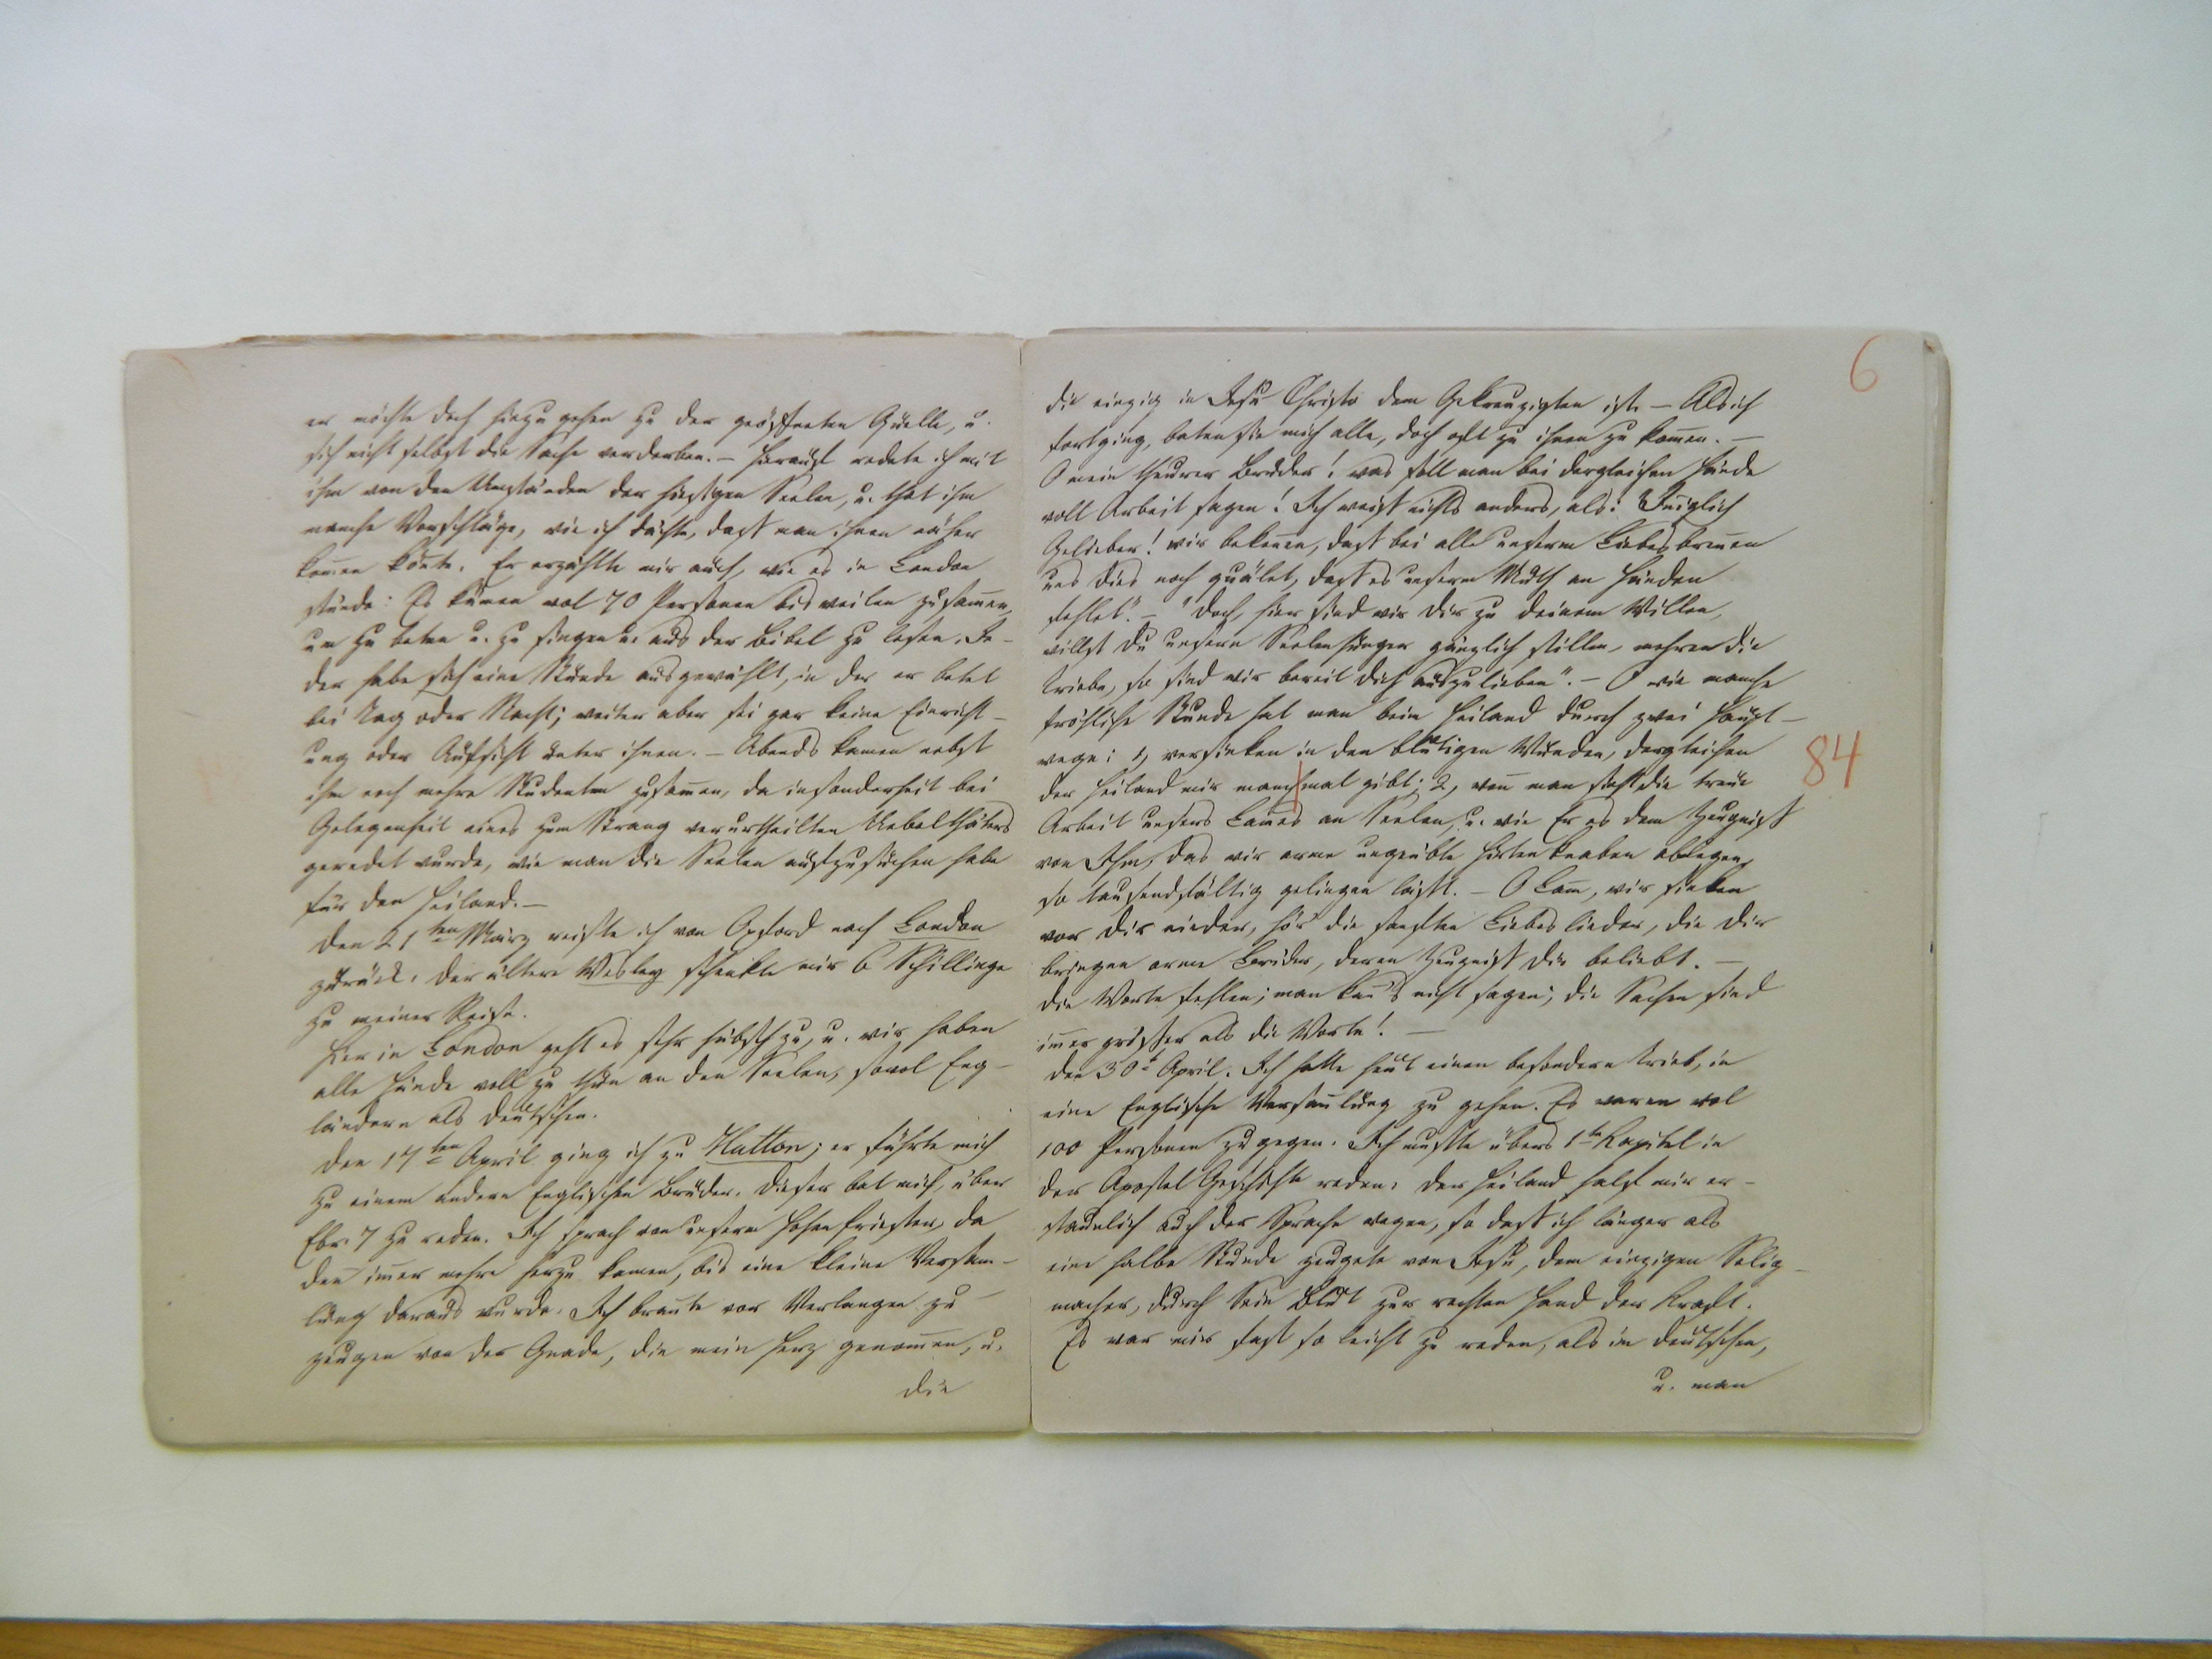 er möchte doch hinzu gehen zu der geöffneten Quelle, u.
sich nicht selbst die Sache verderben. – Hierauf redete ich mit
ihm von den Umständen der hiesigen Seelen, u. that ihm
manche Vorschläge, wie ich dächte, daß man ihnen näher
kom̄en könte. Er erzählte mir auch, wie es in London
stünde: Es kämen wol 70 Personen bisweilen zusam̄en,
um zu beten u. zu singen u. aus der Bibel zu lesen. Je-
der habe sich eine Stunde ausgewählt, in der er betet
bei Tag oder Nacht; weiter aber sei gar keine Einricht-
ung oder Aufsicht unter ihnen. – Abends kamen nebst
ihm noch mehre Studenten zusam̄en, da insonderheit bei
Gelegenheit eines zum Strang verurtheilten Uebelthäters
geredet wurde, wie man die Seelen aufzusuchen habe
für den Heiland. –
Den 21ten März reiste ich von Oxford nach London
zurück. Der ältere Wesley schenkte mir 6 Schillinge
zu meiner Reise.
Hier in London geht es sehr hübsch zu, u. wir haben
alle Hände voll zu thun an den Seelen, sowol Eng-
ländern als Deutschen.
Den 17ten April ging ich zu Hutton; er führte mich
zu einem andern Englischen Bruder. Dieser bat mich, über
Ebr. 7 zu reden. Ich sprach von unserm Hohenpriester, da
den̄ im̄er mehre herzu kamen, bis eine kleine Versam-
lung daraus wurde. Ich bran̄te vor Verlangen zu
zeugen von der Gnade, die mein Herz genom̄en, u.
die
6
die einzig in Jesu Christo dem Gekreuzigten ist. – Als ich
fortging, baten sie mich alle, doch oft zu ihnen zu kom̄en. –
O mein theurer Bruder! was soll man bei dergleichen Hände
voll Arbeit sagen! Ich weiß nichts anders, als: "In̄iglich
Geliebter! wir beken̄en, daß bei alle unserm Liebesbren̄en
uns dies noch quälet, daß es unserm Muth an Händen
fehlet." – "Doch, hier sind wir Dir zu deinem Willen,
willst Du unsern Seelenhunger gänzlich stillen, mehren die
Triebe, so sind wir bereit dich auszulieben". – O wie manche
fröhliche Stunde hat man beim Heiland durch zwei Haupt-
wege: 1, versinken in den blutigen Wunden, dergleichen
84
der Heiland mir manchmal gibt; 2, wen̄ man sieht die treue
Arbeit unsers Lam̄es an Seelen, u. wie Er es dem Zeugniß
von Ihm, das wir arme ungeübte Hirtenknaben ablegen,
so tausendfältig gelingen läßt. – O Lam̄, wir sinken
vor Dir nieder, hör' die sanften Liebeslieder, die Dir
bringen arme Brüder, deren Zeugniß Dir beliebt. –
Die Worte fehlen; man kan̄'s nicht sagen; die Sachen sind
im̄er größer als die Worte! –
Den 30t April. Ich hatte heut einen besondern Trieb, in
eine Englische Versam̄lung zu gehen. Es waren wol
100 Personen zugegen. Ich mußte übers 1te Kapitel in
der Apostel Geschichte reden. Der Heiland half mir er-
staunlich auch der Sprache wegen, so daß ich länger als
eine halbe Stunde zeugete von Jesu, dem einzigen Selig-
macher, durch Sein Blut zur rechten Hand der Kraft.
Es war mir fast so leicht zu reden, als im Deutschen,
u. man